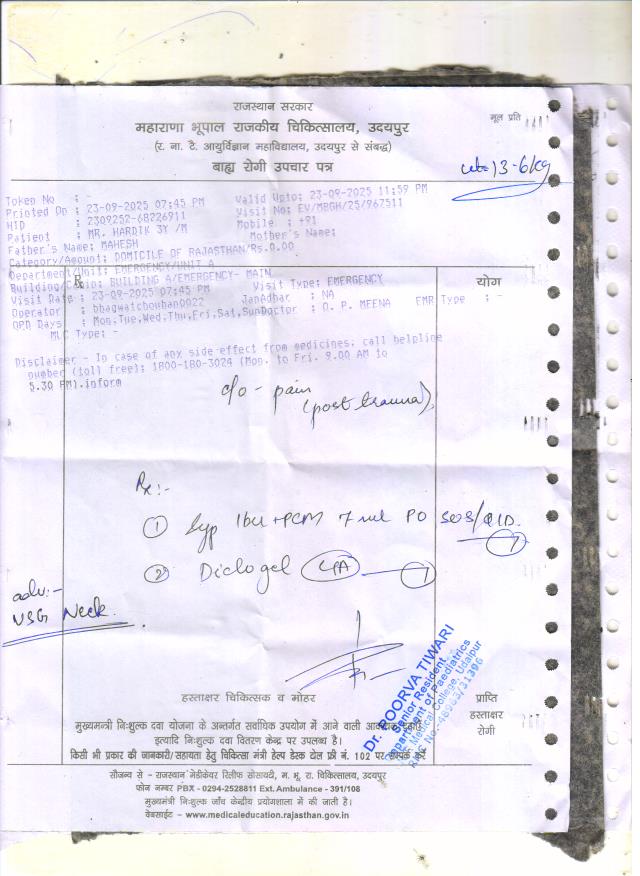 राजस्थान सरकार
मूल प्रति
महाराणा भूपाल राजकीय चिकित्सालय, उदयपुर
(र. ना. टै. आयुर्विज्ञान महाविद्यालय, उदयपुर से संबद्ध)
बाह्य रोगी उपचार पत्र
wt-13-6kg
Token No : -
Printed On : 23-09-2025 07:45 PM Valid Upto: 23-09-2025 11:59 PM
HID : 2309252-68226911 Visit No: EV/MBGH/25/967511
Patient : MR. HARDIK 3Y /M Mobile : +91
Father's Name: MAHESH Mother's Name:
Category/Amount: DOMICILE OF RAJASTHAN/Rs.0.00
Department/Unit: EMERGENCY/UNIT A
Rx
योग
Building/ : BUILDING A/EMERGENCY- MAIN
Visit Date : 23-09-2025 07:45 PM Visit Type: EMERGENCY
Operator : bhagwatchouhan0022 JanAdhar : NA
OPD Days : Mon,Tue,Wed,Thu,Fri,Sat,Sun Doctor : O. P. MEENA EMR Type : -
MLC Type: -
Disclaimer - In case of any side effect from medicines; call helpline
number (toll free): 1800-180-3024 (Mon. to Fri. 9.00 AM to
5.30 PM).inform
c/o - pain
(post trauma)
Rx:-
① Syp Ibu+PCM 7 ml PO SOS/QID.
② Diclogel L/A
adv:-
USG Neck.
Dr. POORVA TIWARI
Senior Resident
Department of Paediatrics
Medical College, Udaipur
हस्ताक्षर चिकित्सक व मोहर
प्राप्ति
हस्ताक्षर
रोगी
मुख्यमन्त्री निःशुल्क दवा योजना के अन्तर्गत सर्वाधिक उपयोग में आने वाली
इत्यादि निःशुल्क दवा वितरण केन्द्र पर उपलब्ध है।
किसी भी प्रकार की जानकारी/सहायता हेतु चिकित्सा मंत्री हेल्प डेस्क टोल फ्री नं. 102 पर सम्पर्क करें
सौजन्य से - राजस्थान मेडीकेयर रिलीफ सोसायटी, म. भू. रा. चिकित्सालय, उदयपुर
फोन नम्बर PBX - 0294-2528811 Ext. Ambulance - 391/108
मुख्यमंत्री निःशुल्क जाँच केन्द्रीय प्रयोगशाला में की जाती है।
वेबसाईट – www.medicaleducation.rajasthan.gov.in